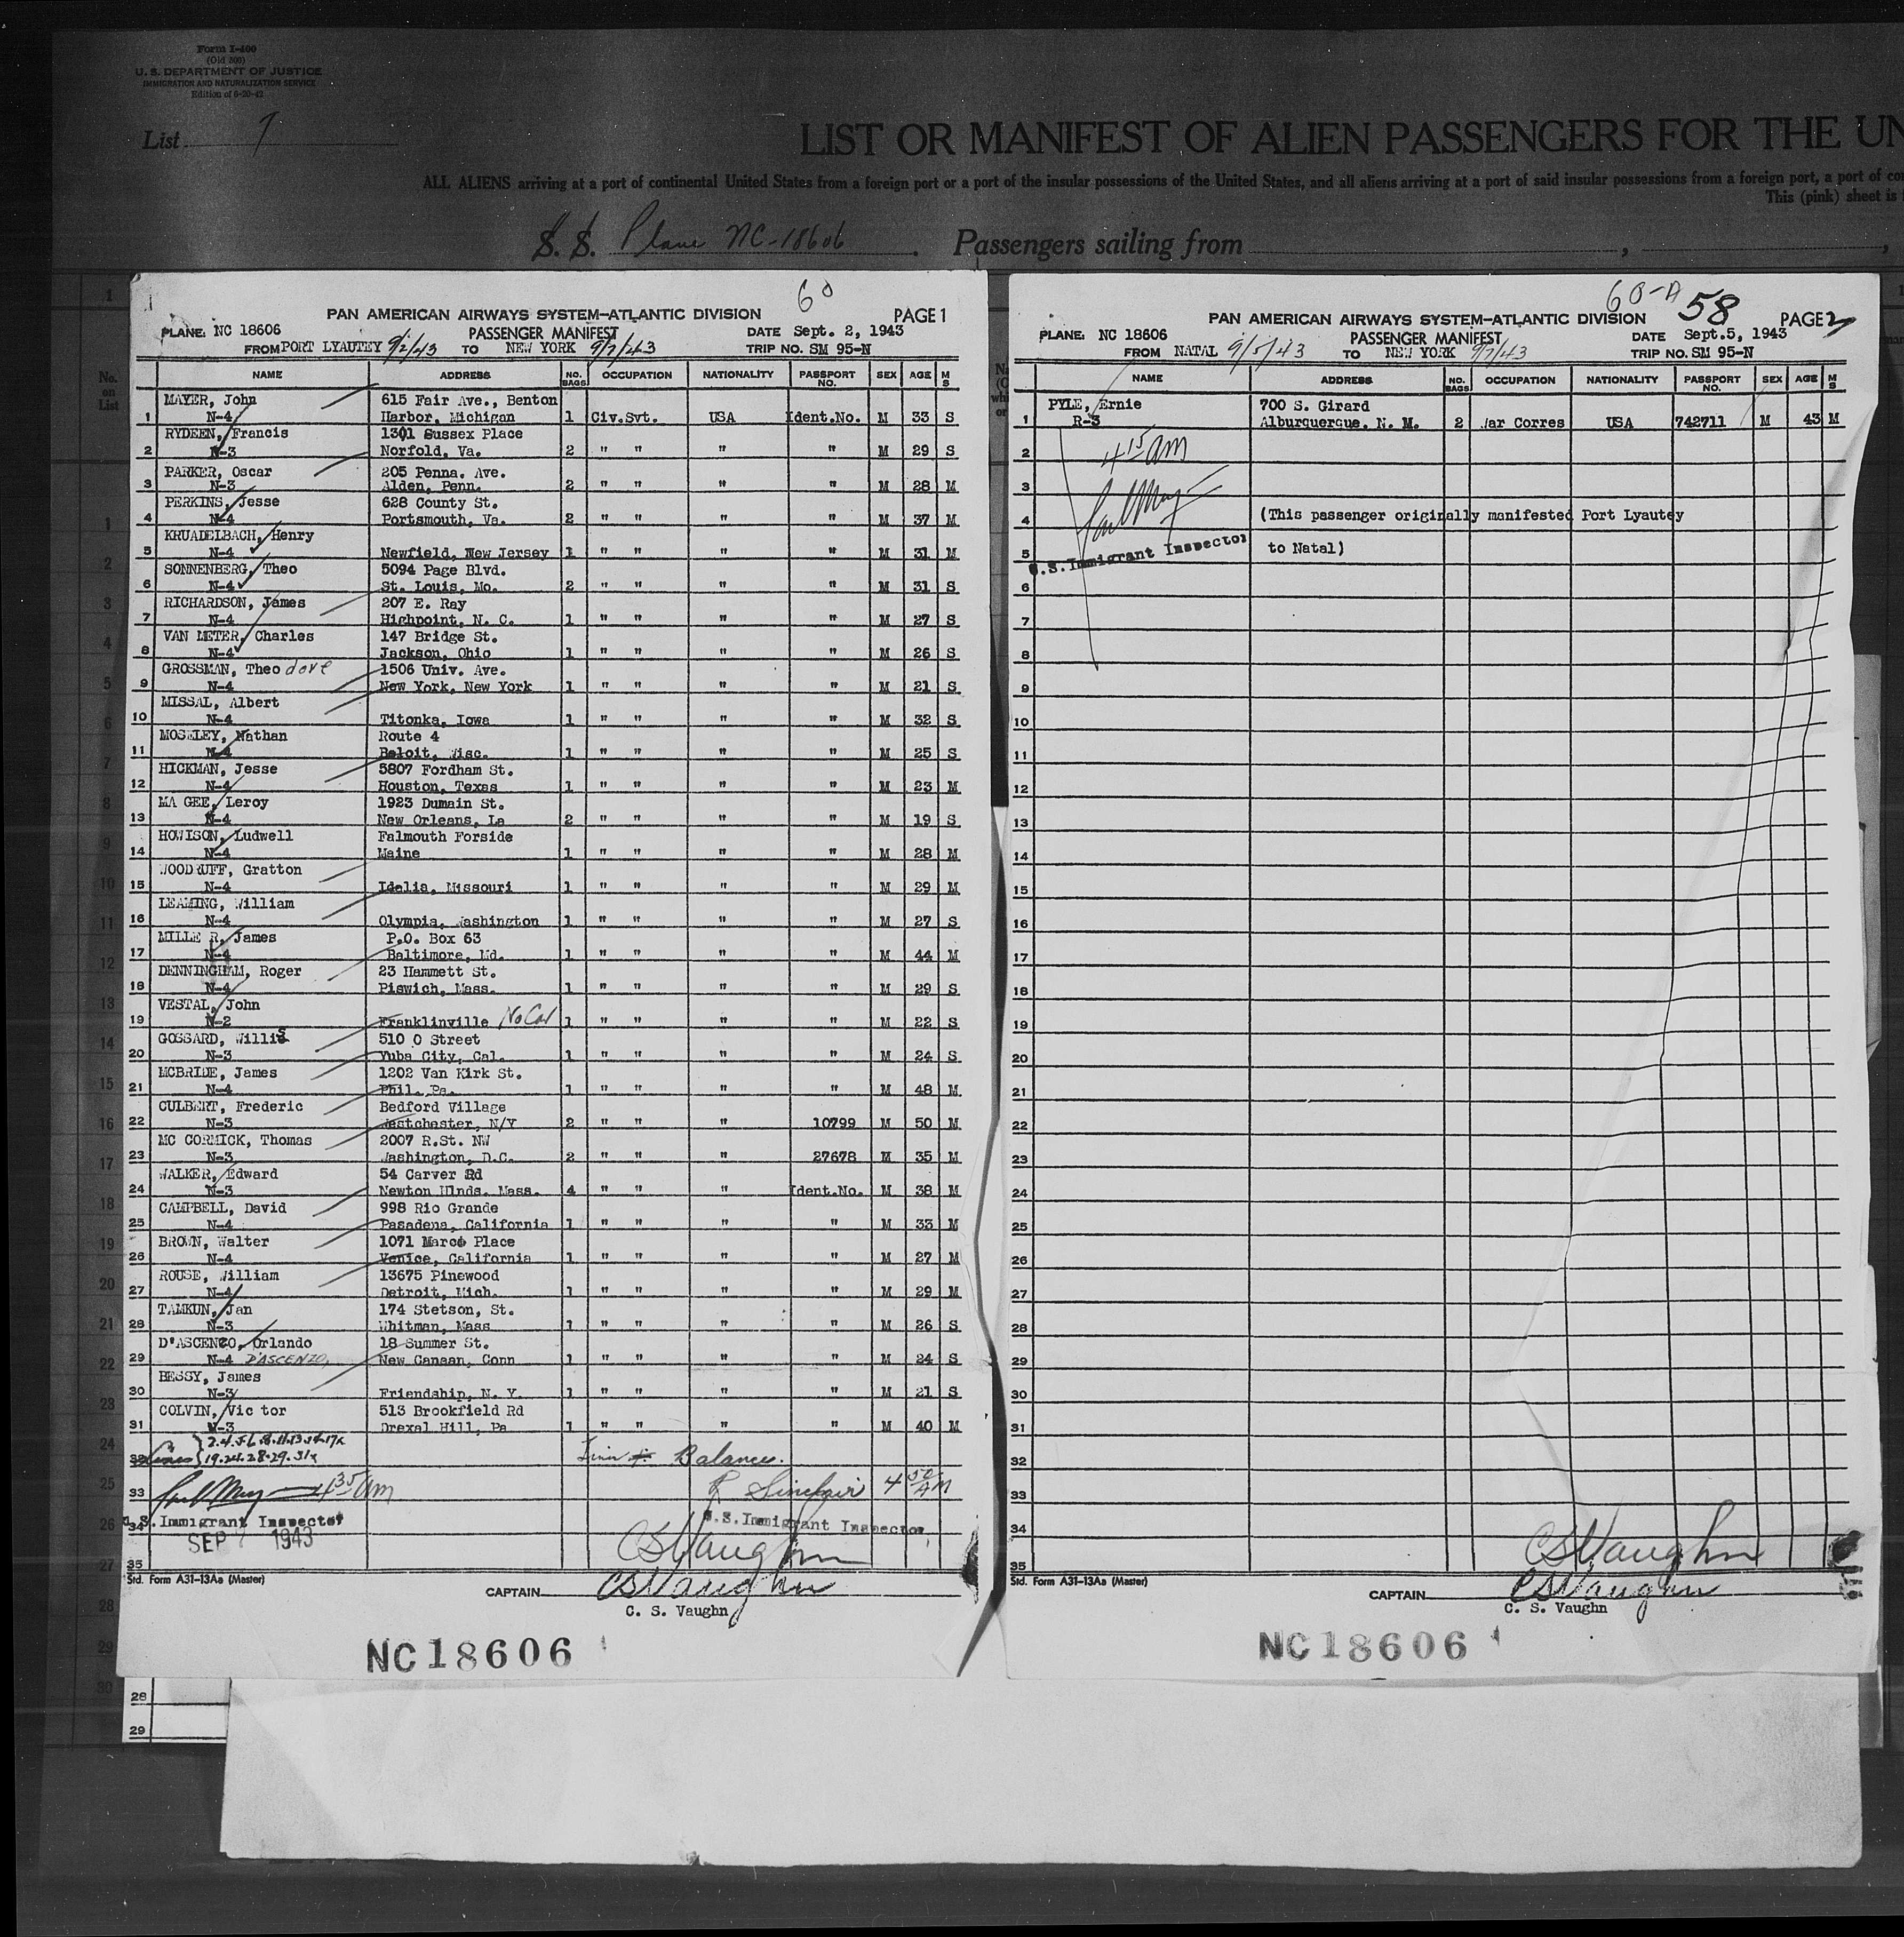 Form I-400
(Old 500)
U. S. DEPARTMENT OF JUSTICE
IMMIGRATION AND NATURALIZATION SERVICE
Edition of 6-20-42
List 1
LIST OR MANIFEST OF ALIEN PASSENGERS FOR THE UN
ALL ALIENS arriving at a port of continental United States from a foreign port or a port of the insular possessions of the United States, and all aliens arriving at a port of said insular possessions from a foreign port, a port of con
This (pink) sheet is
S. S. Plane NC-18606. Passengers sailing from
60
PAN AMERICAN AIRWAYS SYSTEM—ATLANTIC DIVISION PAGE 1
PLANE: NC 18606 PASSENGER MANIFEST DATE Sept. 2, 1943
FROM PORT LYAUTEY 9/2/43 TO NEW YORK 9/7/43 TRIP NO. SM 95-N
NAME ADDRESS NO. BAGS OCCUPATION NATIONALITY PASSPORT NO. SEX AGE M S
MAYER, John 615 Fair Ave., Benton
1 N-4 Harbor, Michigan 1 Civ.Svt. USA Ident.No. M 33 S
RYDEEN, Francis 1301 Sussex Place
2 N-3 Norfold, Va. 2 " " " " M 29 S
PARKER, Oscar 205 Penna. Ave.
3 N-3 Alden, Penn. 2 " " " " M 28 M
PERKINS, Jesse 628 County St.
4 N-4 Portsmouth, Va. 2 " " " " M 37 M
KRUADELBACH, Henry
5 N-4 Newfield, New Jersey 1 " " " " M 31 M
SONNENBERG, Theo 5094 Page Blvd.
6 N-4 St. Louis, Mo. 2 " " " " M 31 S
RICHARDSON, James 207 E. Ray
7 N-4 Highpoint, N. C. 1 " " " " M 27 S
VAN METER, Charles 147 Bridge St.
8 N-4 Jackson, Ohio 1 " " " " M 26 S
GROSSMAN, Theodore 1506 Univ. Ave.
9 N-4 New York, New York 1 " " " " M 21 S
MISSAL, Albert
10 N-4 Titonka, Iowa 1 " " " " M 32 S
MOSELEY, Nathan Route 4
11 N-4 Beloit, Wisc. 1 " " " " M 25 S
HICKMAN, Jesse 5807 Fordham St.
12 N-4 Houston, Texas 1 " " " " M 23 M
MA GEE, Leroy 1923 Dumain St.
13 N-4 New Orleans, La 2 " " " " M 19 S
HOWISON, Ludwell Falmouth Forside
14 N-4 Maine 1 " " " " M 28 M
WOODRUFF, Gratton
15 N-4 Idalia, Missouri 1 " " " " M 29 M
LEAMING, William
16 N-4 Olympia, Washington 1 " " " " M 27 S
MILLE R, James P.O. Box 63
17 N-4 Baltimore, Md. 1 " " " " M 44 M
DENNINGHAM, Roger 23 Hammett St.
18 N-4 Piswich, Mass. 1 " " " " M 29 S
VESTAL, John
19 N-2 Franklinville No Car 1 " " " " M 22 S
GOSSARD, Willis 510 O Street
20 N-3 Yuba City, Cal. 1 " " " " M 24 S
MCBRIDE, James 1202 Van Kirk St.
21 N-4 Phil. Pa. 1 " " " " M 48 M
CULBERT, Frederic Bedford Village
22 N-3 Westchester, N/Y 2 " " " 10799 M 50 M
MC CORMICK, Thomas 2007 R.St. NW
23 N-3 Washington, D.C. 2 " " " 27678 M 35 M
WALKER, Edward 54 Carver Rd
24 N-3 Newton Hlnds. Mass. 4 " " " Ident.No. M 38 M
CAMPBELL, David 998 Rio Grande
25 N-4 Pasadena, California 1 " " " " M 33 M
BROWN, Walter 1071 Marco Place
26 N-4 Venice, California 1 " " " " M 27 M
ROUSE, William 13675 Pinewood
27 N-4 Detroit, Mich. 1 " " " " M 29 M
TAMKUN, Jan 174 Stetson, St.
28 N-3 Whitman, Mass 1 " " " " M 26 S
D'ASCENZO, Orlando 18 Summer St.
29 N-4 D'ASCENZO, New Canaan, Conn 1 " " " " M 24 S
BESSY, James
30 N-3 Friendship, N. Y. 1 " " " " M 21 S
COLVIN, Vic tor 513 Brookfield Rd
31 N-3 Drexal Hill, Pa 1 " " " " M 40 M
32 Lines 2.4.5.6.8.11.13.14.17
19.24.28.29.31 Balance.
33 Paul May 4 35 am R Sinclair 4 50 AM
34 U.S. Immigrant Inspector U.S. Immigrant Inspector
SEP 7 1943 CSVaughn
35
Std. Form A31-13Aa (Master)
CAPTAIN CSVaughn
C. S. Vaughn
NC18606
28
29
60-A 58
PAN AMERICAN AIRWAYS SYSTEM—ATLANTIC DIVISION PAGE 2
PLANE: NC 18606 PASSENGER MANIFEST DATE Sept.5, 1943
FROM NATAL 9/5/43 TO NEW YORK 9/7/43 TRIP NO. SM 95-N
NAME ADDRESS NO. BAGS OCCUPATION NATIONALITY PASSPORT NO. SEX AGE M S
PYLE, Ernie 700 S. Girard
1 R-3 Alburquerque. N. M. 2 War Corres USA 742711 M 43 M
2 4 15 am
3 Paul May
4 (This passenger originally manifested Port Lyautey
5 U.S. Immigrant Inspector to Natal)
6
7
8
9
10
11
12
13
14
15
16
17
18
19
20
21
22
23
24
25
26
27
28
29
30
31
32
33
34 CSVaughn
35
Std. Form A31-13Aa (Master)
CAPTAIN CSVaughn
C. S. Vaughn
NC18606